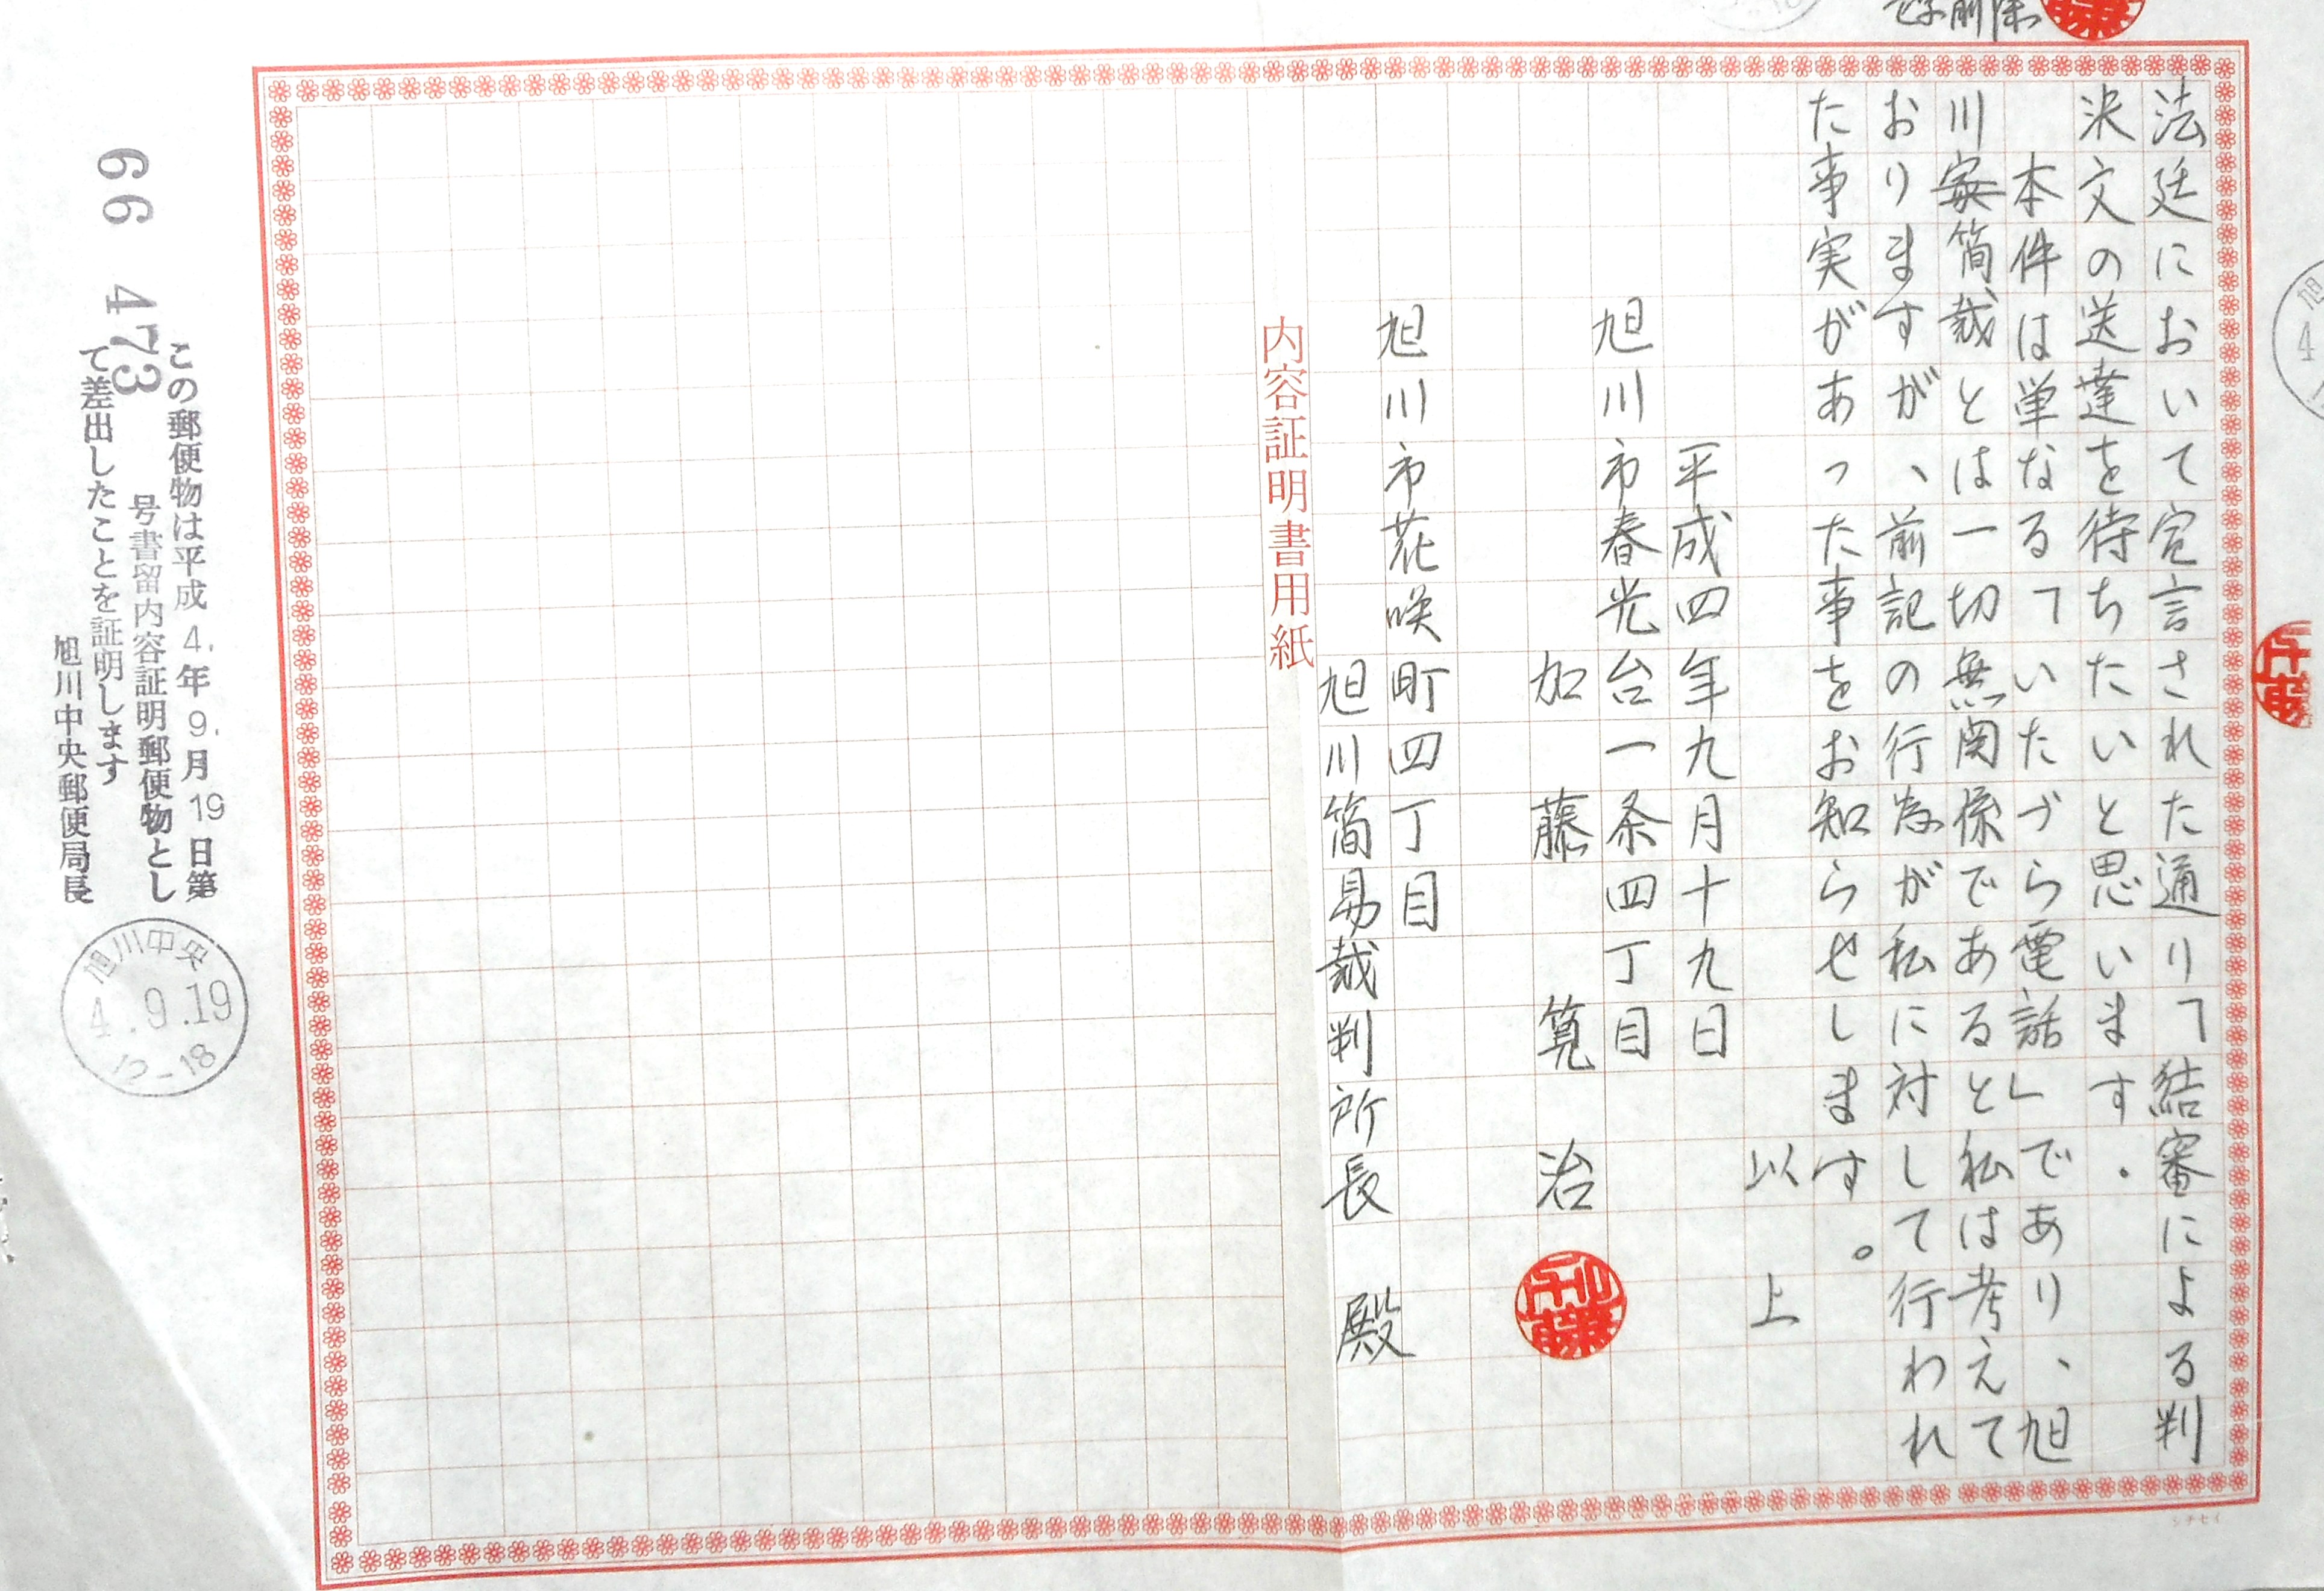 法廷において宣言された通り「結審による判
決文の送達を待ちたいと思います。
本件は単なる「いたづら電話」であり、旭
川簡裁とは一切無関係であると私は考えて
おりますが、前記の行為が私に対して行われ
た事実があった事をお知らせします。
以上
平成四年九月十九日
旭川市春光台一条四丁目
加藤筧治
旭川市花咲町四丁目
旭川簡易裁判所長殿
内容証明書用紙
この郵便物は平成4.年9.月19日第
66473号書留内容証明郵便物とし
て差出したことを証明します
旭川中央郵便局長
旭川中央
4.9.19
12-18
シチセイ